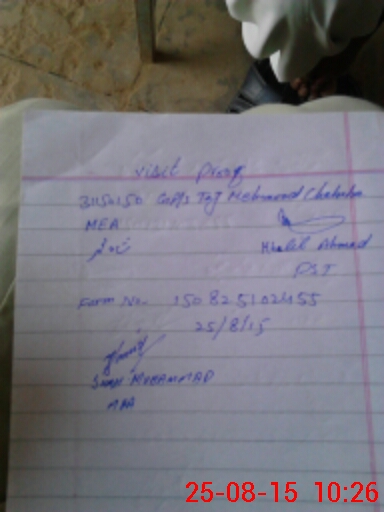 visit Proof
31150150 GGPS Taj Mehmood Chak
MEA
Khalil Ahmad
PST
Form No. 150825102455
25/8/15
MUHAMMAD
25-08-15 10:26